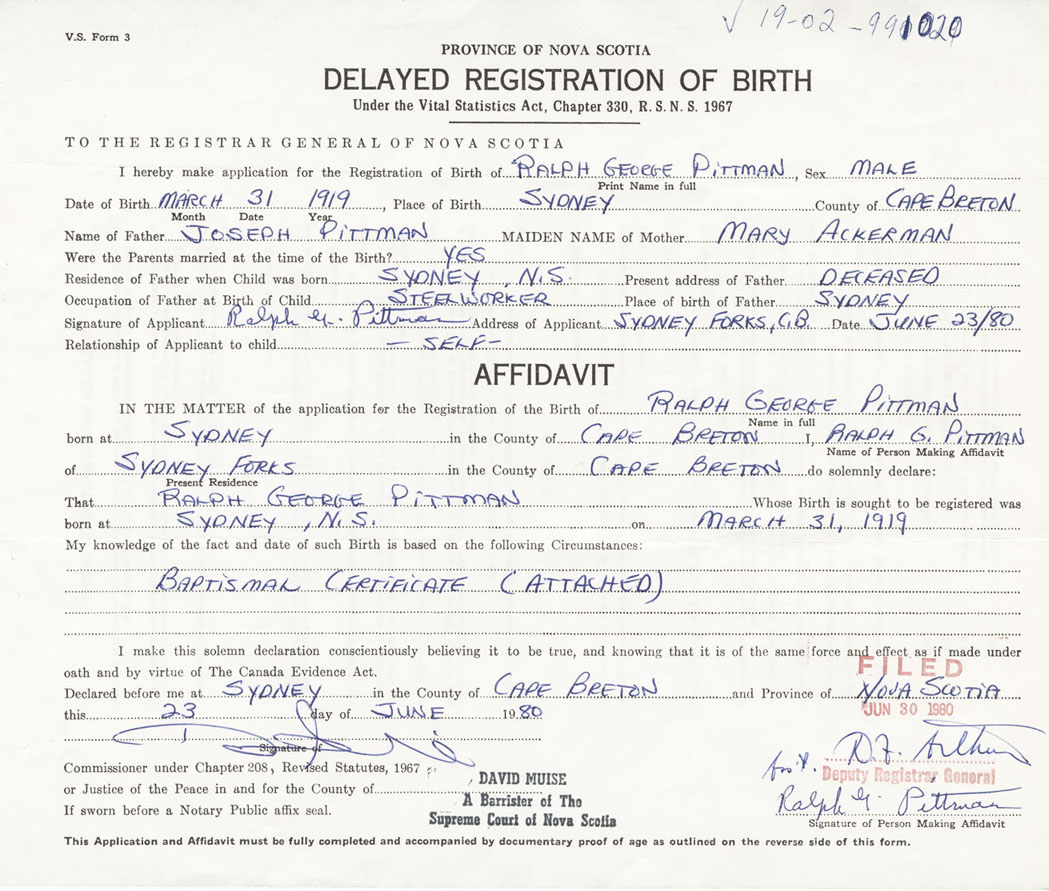 V.S. Form 3
√ 19-02-991020
PROVINCE OF NOVA SCOTIA
DELAYED REGISTRATION OF BIRTH
Under the Vital Statistics Act, Chapter 330, R.S.N.S. 1967
TO THE REGISTRAR GENERAL OF NOVA SCOTIA
I hereby make application for the Registration of Birth of RALPH GEORGE PITTMAN, Sex MALE
Print Name in full
Date of Birth MARCH 31 1919, Place of Birth SYDNEY County of CAPE BRETON
Month Date Year
Name of Father JOSEPH PITTMAN MAIDEN NAME of Mother MARY ACKERMAN
Were the Parents married at the time of the Birth? YES
Residence of Father when Child was born SYDNEY, N.S. Present address of Father DECEASED
Occupation of Father at Birth of Child STEELWORKER Place of birth of Father SYDNEY
Signature of Applicant Ralph G. Pittman Address of Applicant SYDNEY FORKS, C.B. Date JUNE 23/80
Relationship of Applicant to child - SELF -
AFFIDAVIT
IN THE MATTER of the application for the Registration of the Birth of RALPH GEORGE PITTMAN
Name in full
born at SYDNEY in the County of CAPE BRETON I, RALPH G. PITTMAN
Name of Person Making Affidavit
of SYDNEY FORKS in the County of CAPE BRETON do solemnly declare:
Present Residence
That RALPH GEORGE PITTMAN Whose Birth is sought to be registered was
born at SYDNEY, N.S. on MARCH 31, 1919
My knowledge of the fact and date of such Birth is based on the following Circumstances:
BAPTISMAL CERTIFICATE (ATTACHED)
I make this solemn declaration conscientiously believing it to be true, and knowing that it is of the same force and effect as if made under
oath and by virtue of The Canada Evidence Act.
FILED
Declared before me at SYDNEY in the County of CAPE BRETON and Province of NOVA SCOTIA
JUN 30 1980
this 23 day of JUNE 1980
Signature of
Commissioner under Chapter 208, Revised Statutes, 1967
or Justice of the Peace in and for the County of
If sworn before a Notary Public affix seal.
DAVID MUISE
A Barrister of The
Supreme Court of Nova Scotia
Deputy Registrar General
Ralph G. Pittman
Signature of Person Making Affidavit
This Application and Affidavit must be fully completed and accompanied by documentary proof of age as outlined on the reverse side of this form.